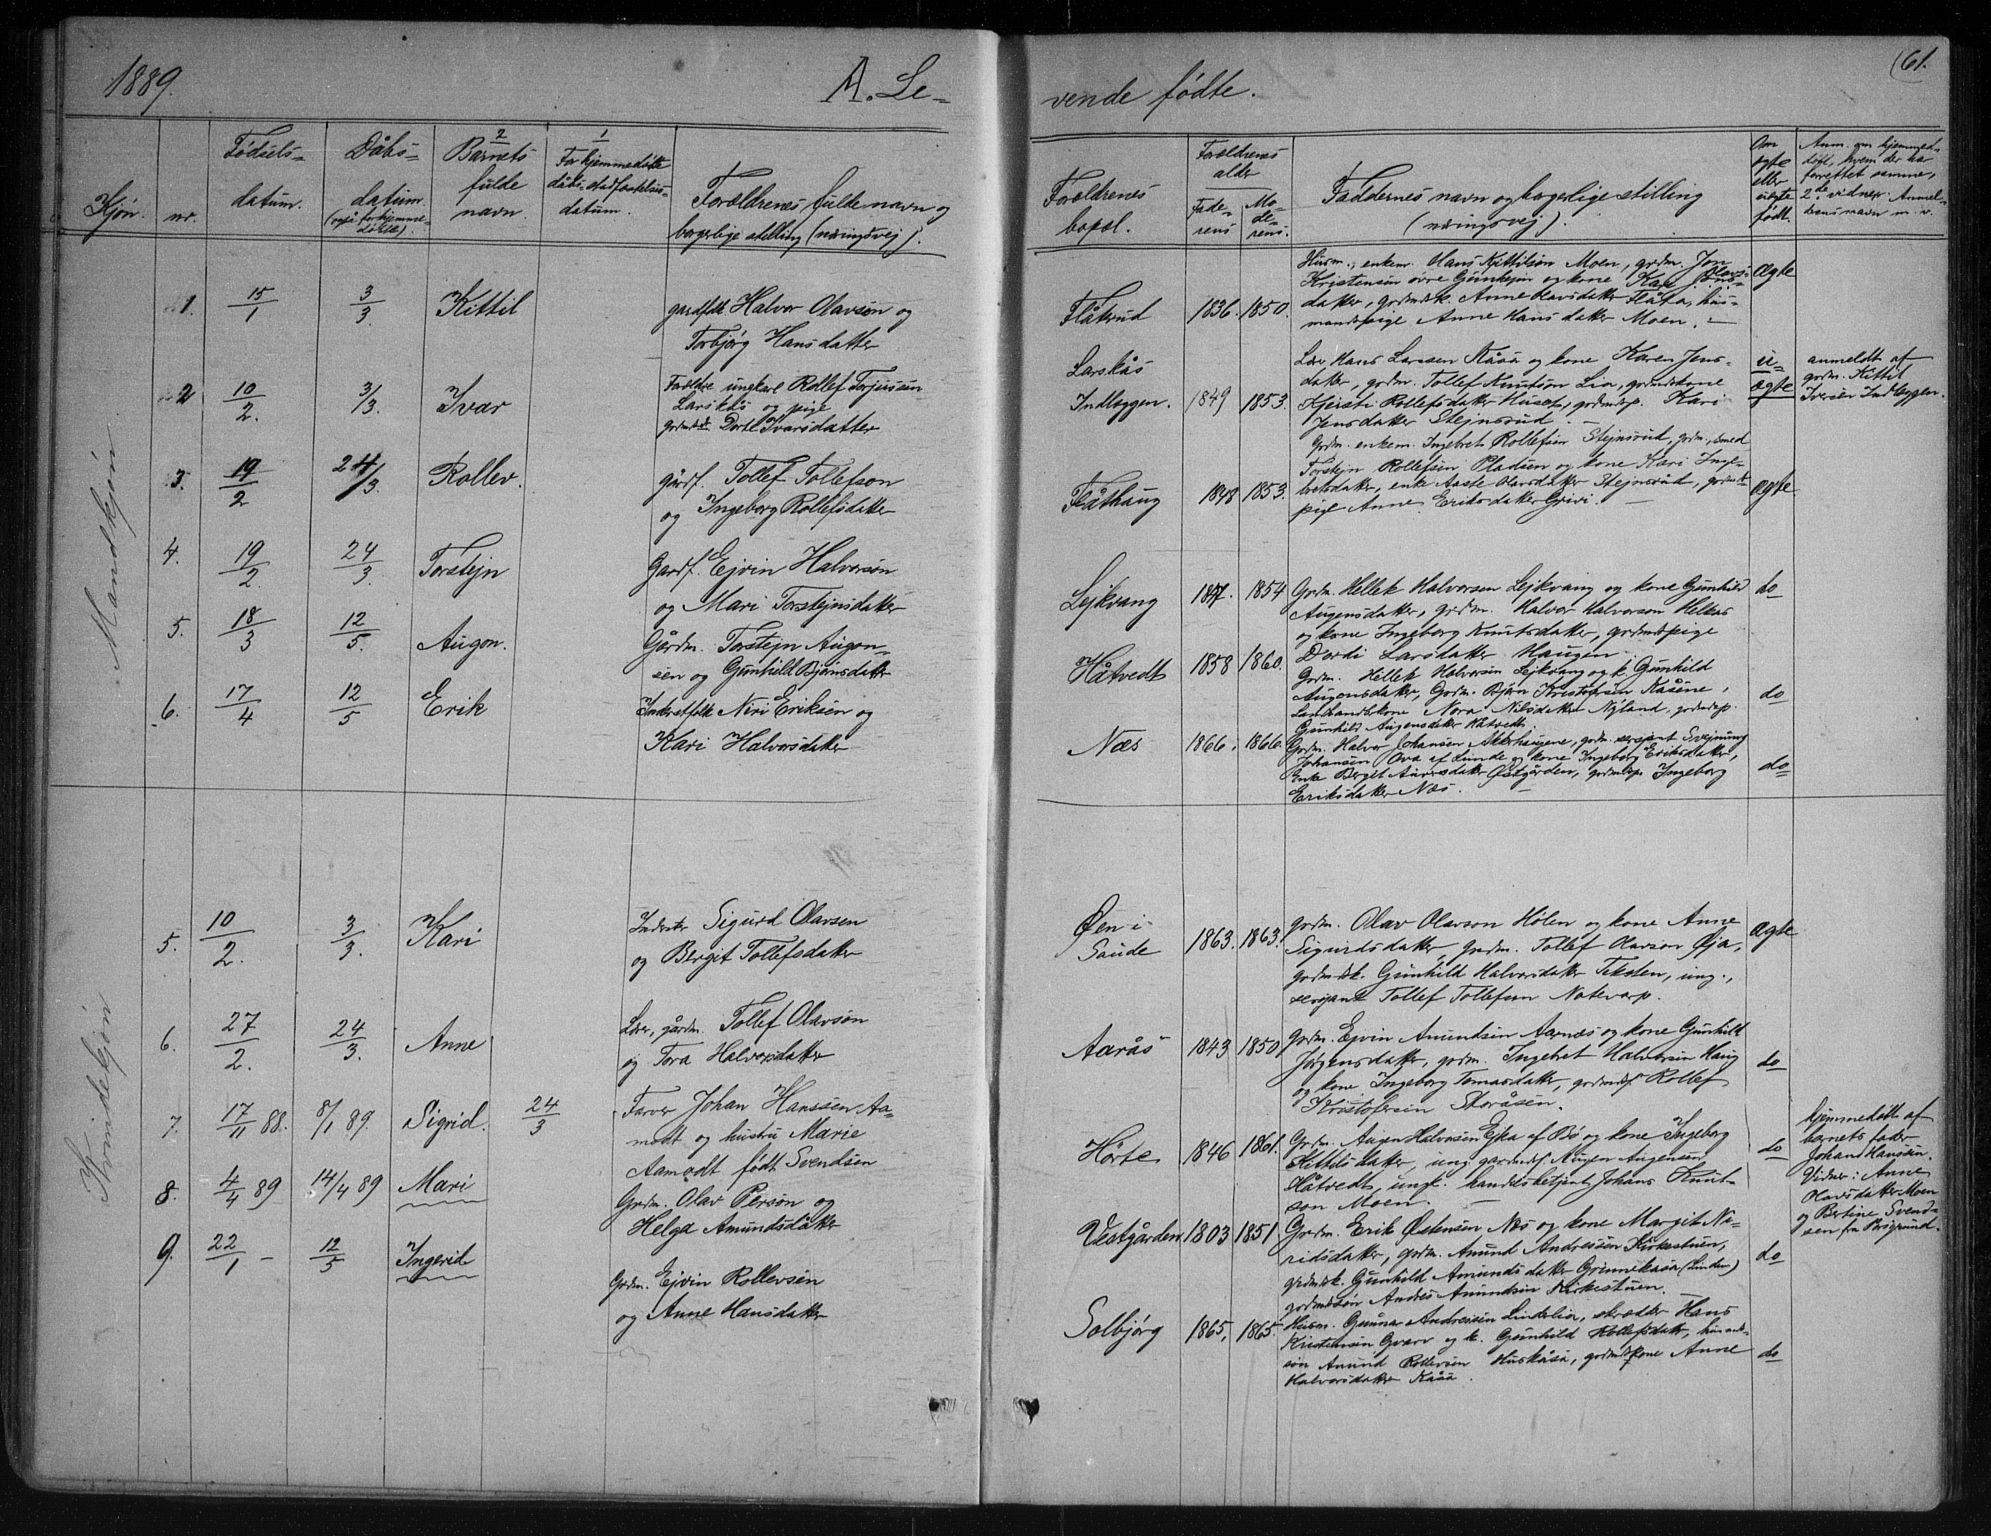 1889.
A. Le-
vende fødte.
61.
Kjøn.
nr.
Fødsels-
datum.
Dåbs-
datum.
(også for hjemme-
døbte).
2
Barnets
fulde
navn.
1
For hjemmedøbte
dåbs-stadfæstelses-
datum.
Forældrenes fulde navn og
borgerlige stilling (næringsvej).
Forældrenes
bopæl.
Forældrenes
alder
Fade-
rens
Mo-
de-
rens.
Faddernes navn og borgerlige stilling
(næringsvej).
Om
ægte
eller
uægte
født.
Anm. om hjemmed-
døbt, hvem der har
forrettet samme,
2de vidner. Anmel-
derens navn m. v.
Mandkjøn
1. 15/1 3/3 Kittil
gardfolk Halvor Olavsøn og
Torbjørg Hansdatter
Flåtrud 1836. 1850.
Husm., enkem. Hans Kittilsøn Moen, grdm. Jon
Kristensen øvre Gunheim og kone Kari Olavs-
datter, grdmdsk. Anne Olavsdatter Flåta, hus-
mandspige Anne Hansdatter Moen.
Ægte
2 10/2. 3/3. Ivar
Forældre ungkarl Rollef Torjussen
Larskås og pige
grdmdsdt. Dorte Ivarsdatter
Larskås
Indlæggen. 1849 1853.
Lær. Hans Larssen Kåsa og kone Karen Jens-
datter, grdm. Tollef Knutsøn Lia, grdmdskone
Kjersti Rollefsdatter Husaf, grdmdsp. Kari
Jensdatter Stejnsrud.
u-
ægte
anmeldt af
grdm. Kittil
Iversen Indlæggen.
3. 19/2 24/3. Rollev.
gårdf. Tollef Tollefson
og Ingeborg Rollefsdatter
Flåthaug 1848 1853.
Grdm. enkem. Ingebret Rollefsen Stejnsrud, grdm., smed
Torstejn Rollefsen Pladsen og kone Kari Inge-
bretsdatter, enke Aaste Olavsdatter Stejnsrud, grdmds
pige Anne Eriksdatter Grivi.
Ægte
4. 19/2 24/3. Torstejn
Gardf. Ejvin Halvorsøn
og Mari Torstejnsdatter
Lejkvang 1857. 1854
Grdm. Hellek Halvorsen Lejkvang og kone Gunhild
Augensdatter, grdm. Halvor Halvorsen Helkås
og kone Ingeborg Knutsdatter, grdmdspige
Dordi Larsdatter Haugen.
do
5. 18/3 12/5. Augon.
Gårdm. Torstejn Augon-
sen og Gunhild Bjørnsdatter
Håtvedt 1858 1860.
Grdm. Hellek Halvorsen Lejkvang og k. Gunhild
Augonsdatter, Grdm. Bjørn Kristofersen Kåsene,
Landhandlskone Nora Nilsdatter Nyland, grdmdsp.
Gunhild Augensdatter Håtvedt.
do
6. 17/4 12/5 Erik
Inderstfolk Niri Eriksen og
Kari Halvorsdatter
Næs 1866. 1866.
Grdm. Halvor Johansen Akerhaugene, grdm. sersjant Svejnung
Johansen Ova af Lunde og kone Ingeborg Eriksdatter,
Enke Berget Auversdatter Østgården, grdmdsp. Ingeborg
Eriksdatter Næs.
do
Kvindekjøn
5. 10/2. 3/3. Kari
Inderster Sigurd Olavsen
og Bergit Tollefsdatter
Øen i
Saude 1863. 1863.
grdm. Olav Olavson Hølen og kone Anne
Sigurdsdatter, grdm. Tollef Olavson Øja,
grdmdsk. Gunhild Halvorsdatter Teksten, ung.,
sersjant Tollef Tollefsen Notevarp.
Ægte
6. 27/2. 24/3. Anne
Lærer, gårdm. Tollef Olavsøn
og Tora Halvorsdatter
Aarås 1843 1850
Grdm. Ejvin Amundsen Aarnæs og kone Gunhild
Jørgensdatter, grdm. Ingebret Halvorsen Haug
og kone Ingeborg Tomasdatter, grdmdsf. Rollef
Kristofersen Skoråsen.
do
7. 17/11 88. 8/1 89. Sigrid. 24/3
Farver Johan Hanssen Aa-
modt og hustru Marie
Aamodt født Svendsen
Hørte 1846 1861.
Grdm. Augen Halvorsen Ejka af Bø og kone Ingeborg
Kittilsdatter, ung. gardmdsf. Augen Augensen
Håtvedt, ungk. handelsbetjent Johans Knut-
son Moen.
do
hjemmedøbt af
barnets fader
Johan Hanssen.
Vidner: Anne
Olavsdatter Moen
og Bertine Svend-
sen fra Brogrund.
8. 4/4 89 14/4 89 Mari
Grdm. Olav Persøn og
Helga Amundsdatter
Vestgården 1803 1851
Grdm. Erik Østensen Næs og kone Margit Ne-
ridsdatter, grdm. Amund Andreasen Kirkestuen,
grdmdsk. Gunhild Amundsdatter Grinnekåsa (Linden)
grdmdssøn Andres Amundsen Kirkestuen.
do
9. 22/1 - 12/5 Ingerid
Grdm. Ejvin Rollevsen
og Anne Hansdatter
Solbjørg 1865. 1865
Husm. Gunnar Andreasen Lindelia, skrædder Hans
Kristensen Gvarv og k. Gunhild Rollefsdatt., husmds-
søn Amund Rollevsen Huskåsa, grdmdskone Anne
Halvorsdatter Kåsa.
do